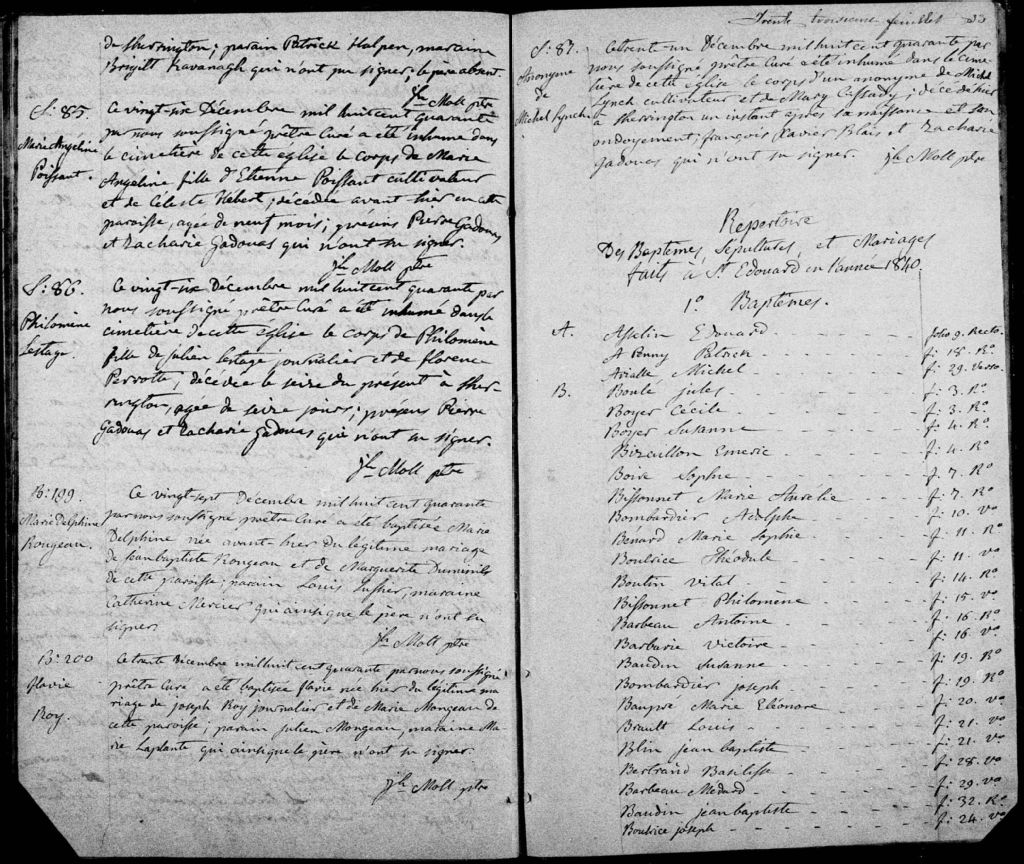 de Sherrington; parain Patrick Halpen, maraine
Brigitt Kavanagh qui n'ont pu signer, le père absent.
Jh Moll ptre
S: 85.
Marie Angeline
Poissant.
Ce vingt-six Décembre mil huit cent quarante
par nous soussigné prêtre Curé a été inhumé dans
le cimetière de cette église le corps de Marie
Angeline fille d'Etienne Poissant cultivateur
et de Céleste Hébert, décédée avant-hier en cette
paroisse, agée de neuf mois; présens Pierre Gadouas
et Zacharie Gadouas qui n'ont su signer.
Jh Moll ptre
S: 86.
Philomène
Lestage.
Ce vingt-six Décembre mil huit cent quarante par
nous soussigné prêtre Curé a été inhumé dans le
cimetière de cette église le corps de Philomène
fille de julien Lestage journalier et de florence
Perrotte, décédée le seize du présent à Sher-
rington, agée de seize jours; présens Pierre
Gadouas et Zacharie Gadouas qui n'ont su signer.
Jh Moll ptre
B: 199
Marie Delphine
Rongeau.
Ce vingt-sept Decembre mil huit cent quarante
par nous soussigné prêtre Curé a été baptisée Marie
Delphine née avant-hier du légitime mariage
de Jean baptiste Rongeau et de Marguerite Duminils
de cette paroisse; parain Louis Lussier, maraine
Catherine Mercier qui ainsi que le père n'ont su
signer.
Jh Moll ptre
B: 200
flavie
Roy.
Ce trente Décembre mil huit cent quarante par nous soussigné
prêtre Curé a été baptisée flavie née hier du légitime ma-
riage de joseph Roy journalier et de Marie Mongeau de
cette paroisse, parain julien Mongeau, maraine Ma-
rie Laplante qui ainsi que le père n'ont su signer.
Jh Moll ptre
Trente troisieme feuillet 33
S: 87.
Anonyme
de
Michel Lynch
Ce trente-un Décembre mil huit cent quarante par
nous soussigné prêtre Curé a été inhumé dans le cime-
tière de cette église le corps d'un anonyme de Michel
Lynch cultivateur et de Mary Cassady, décédé hier
à Sherrington un instant après sa naissance et son
ondoyement; françois Xavier Blais et Zacharie
Gadouas qui n'ont su signer. Jh Moll ptre
Repertoire
Des Baptêmes, Sépultures et Mariages
faits à St Edouard en l'année 1840.
1o Baptêmes.
A. Asselin Edouard folio 9. Recto
A Penny Patrick f: 18. Ro
Arialle Michel f: 29. Verso
B. Boulé jules f: 3. Ro
Boyer Cécile f: 3. Ro
Boyer Susanne f: 4. Ro
Bizeullon Emeric f: 4. Ro
Boire Sophie f: 7. Ro
Bissonnet Marie Aurélie f: 7. Ro
Bombardier Adolphe f: 10. vo
Benard Marie Sophie f: 11. Ro
Boutrice Théodule f: 11. vo
Boutin vital f: 14. Ro
Bissonnet Philomène f: 15. vo
Barbeau Antoine f: 16. Ro
Barbarie victoire f: 16. vo
Baudin Susanne f: 19. Ro
Bombardier joseph f: 19. Ro
Baupré Marie Eléonore f: 20. vo
Brault Louis f: 21. vo
Blin jean baptiste f: 21. vo
Bertrand Basilisse f: 28. vo
Barbeau Médard f: 29. vo
Baudin jean baptiste f: 32. Ro
Boutrice joseph f: 24. vo